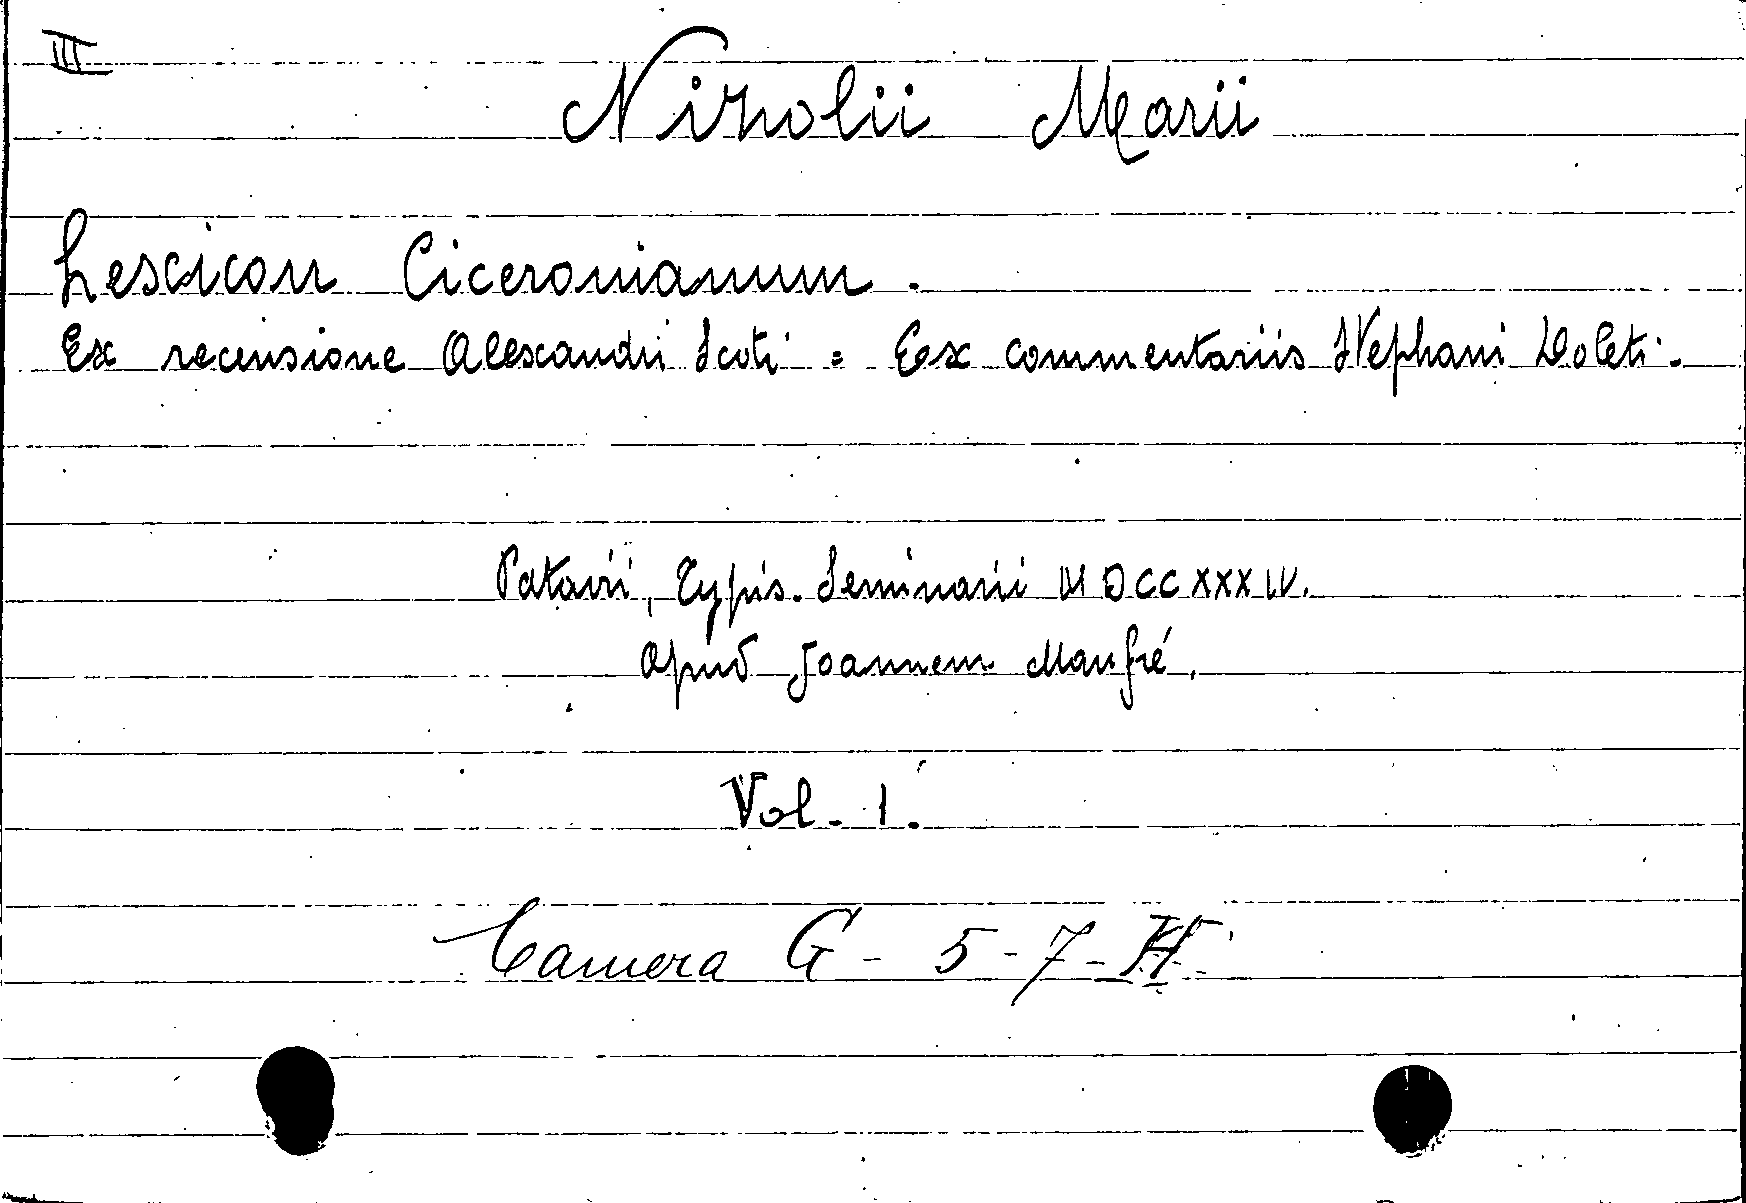 III
Nizolii Marii
Lexicon Ciceronianum.
Ex recensione Alexandri Scoti = Ex commentariis Stephani Doleti.
Patavii, Typis. Seminarii MDCCXXXIV.
Apud Joannem Manfré.
Vol. 1.
Camera G - 5 - 7 - H